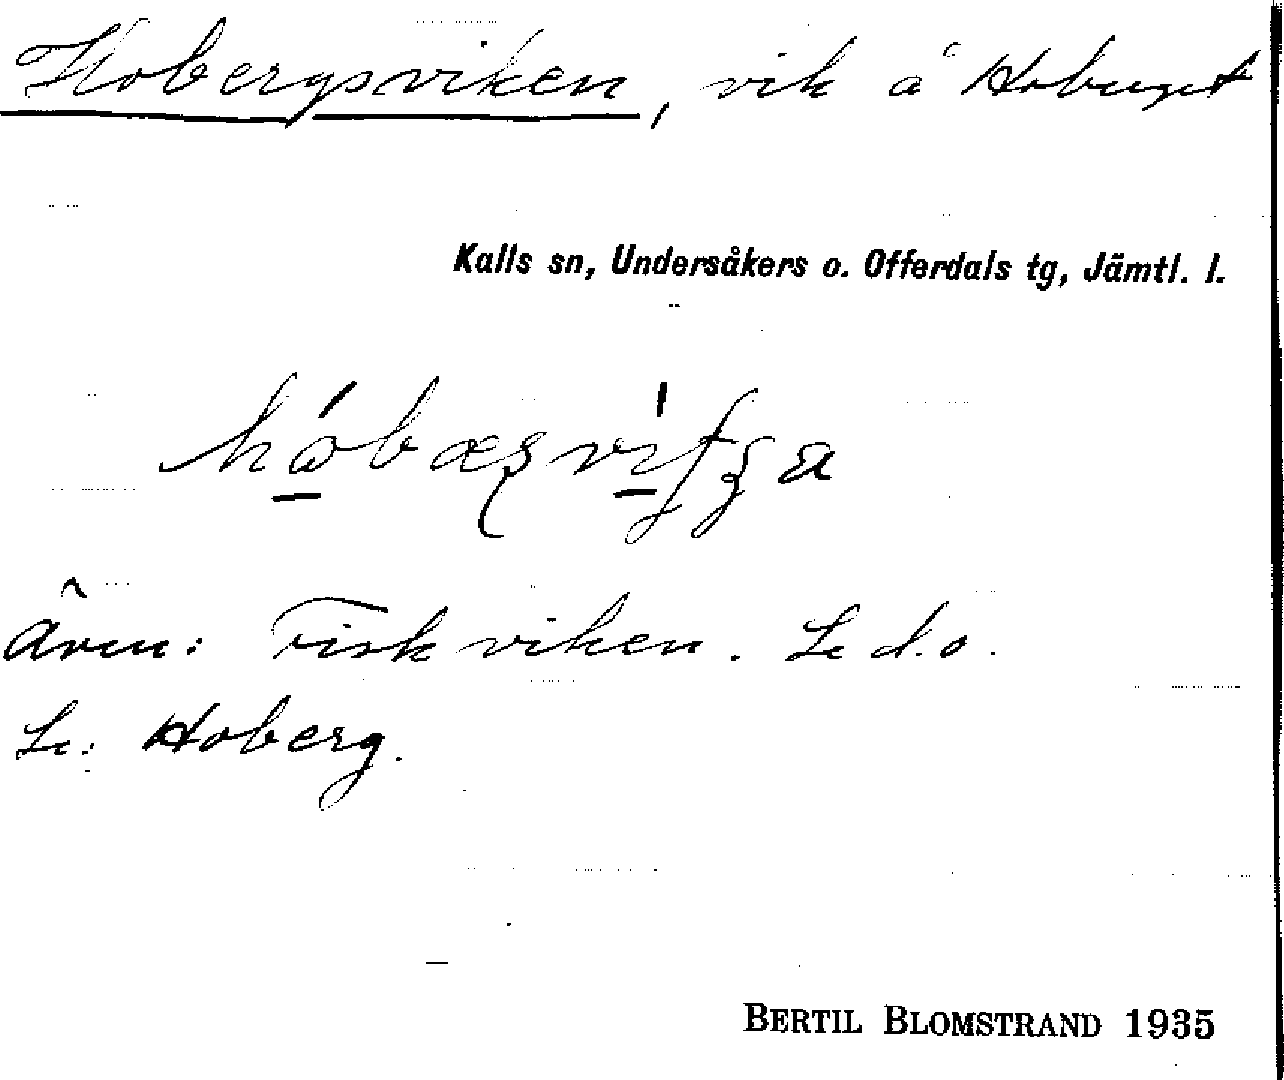 Hobergsviken, vik å Hoberget
Kalls sn, Undersåkers o. Offerdals tg, Jämtl. l.
Även: Fiskviken. Se d.o.
Se: Hoberg.
BERTIL BLOMSTRAND 1935